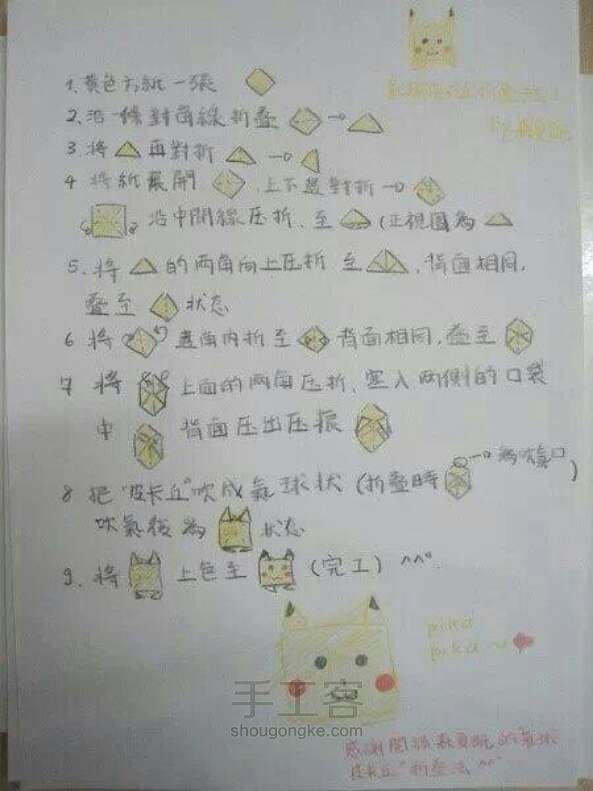 1. 黃色方紙一張
2. 沿一條對角線折疊 →
3 將 再對折 →
4 將紙展開 , 上下邊對折 →
沿中間線压折, 至 (正視圖為
5. 將 的两角向上压折 至 , 背面相同,
疊至 状态
6 將 直角内折至 背面相同, 疊至
7 將 上面的两角压折, 塞入两側的口袋
中 背面压出压振
8 把"皮卡丘"吹成氣球状 (折疊時 → 為吹氣口 )
吹氣後為 状态
9. 將 上色至 (完工) ^^
pika
pika ~
手工客
shougongke.com
感謝閱讀 的氣球
皮卡丘"折疊法 ^^